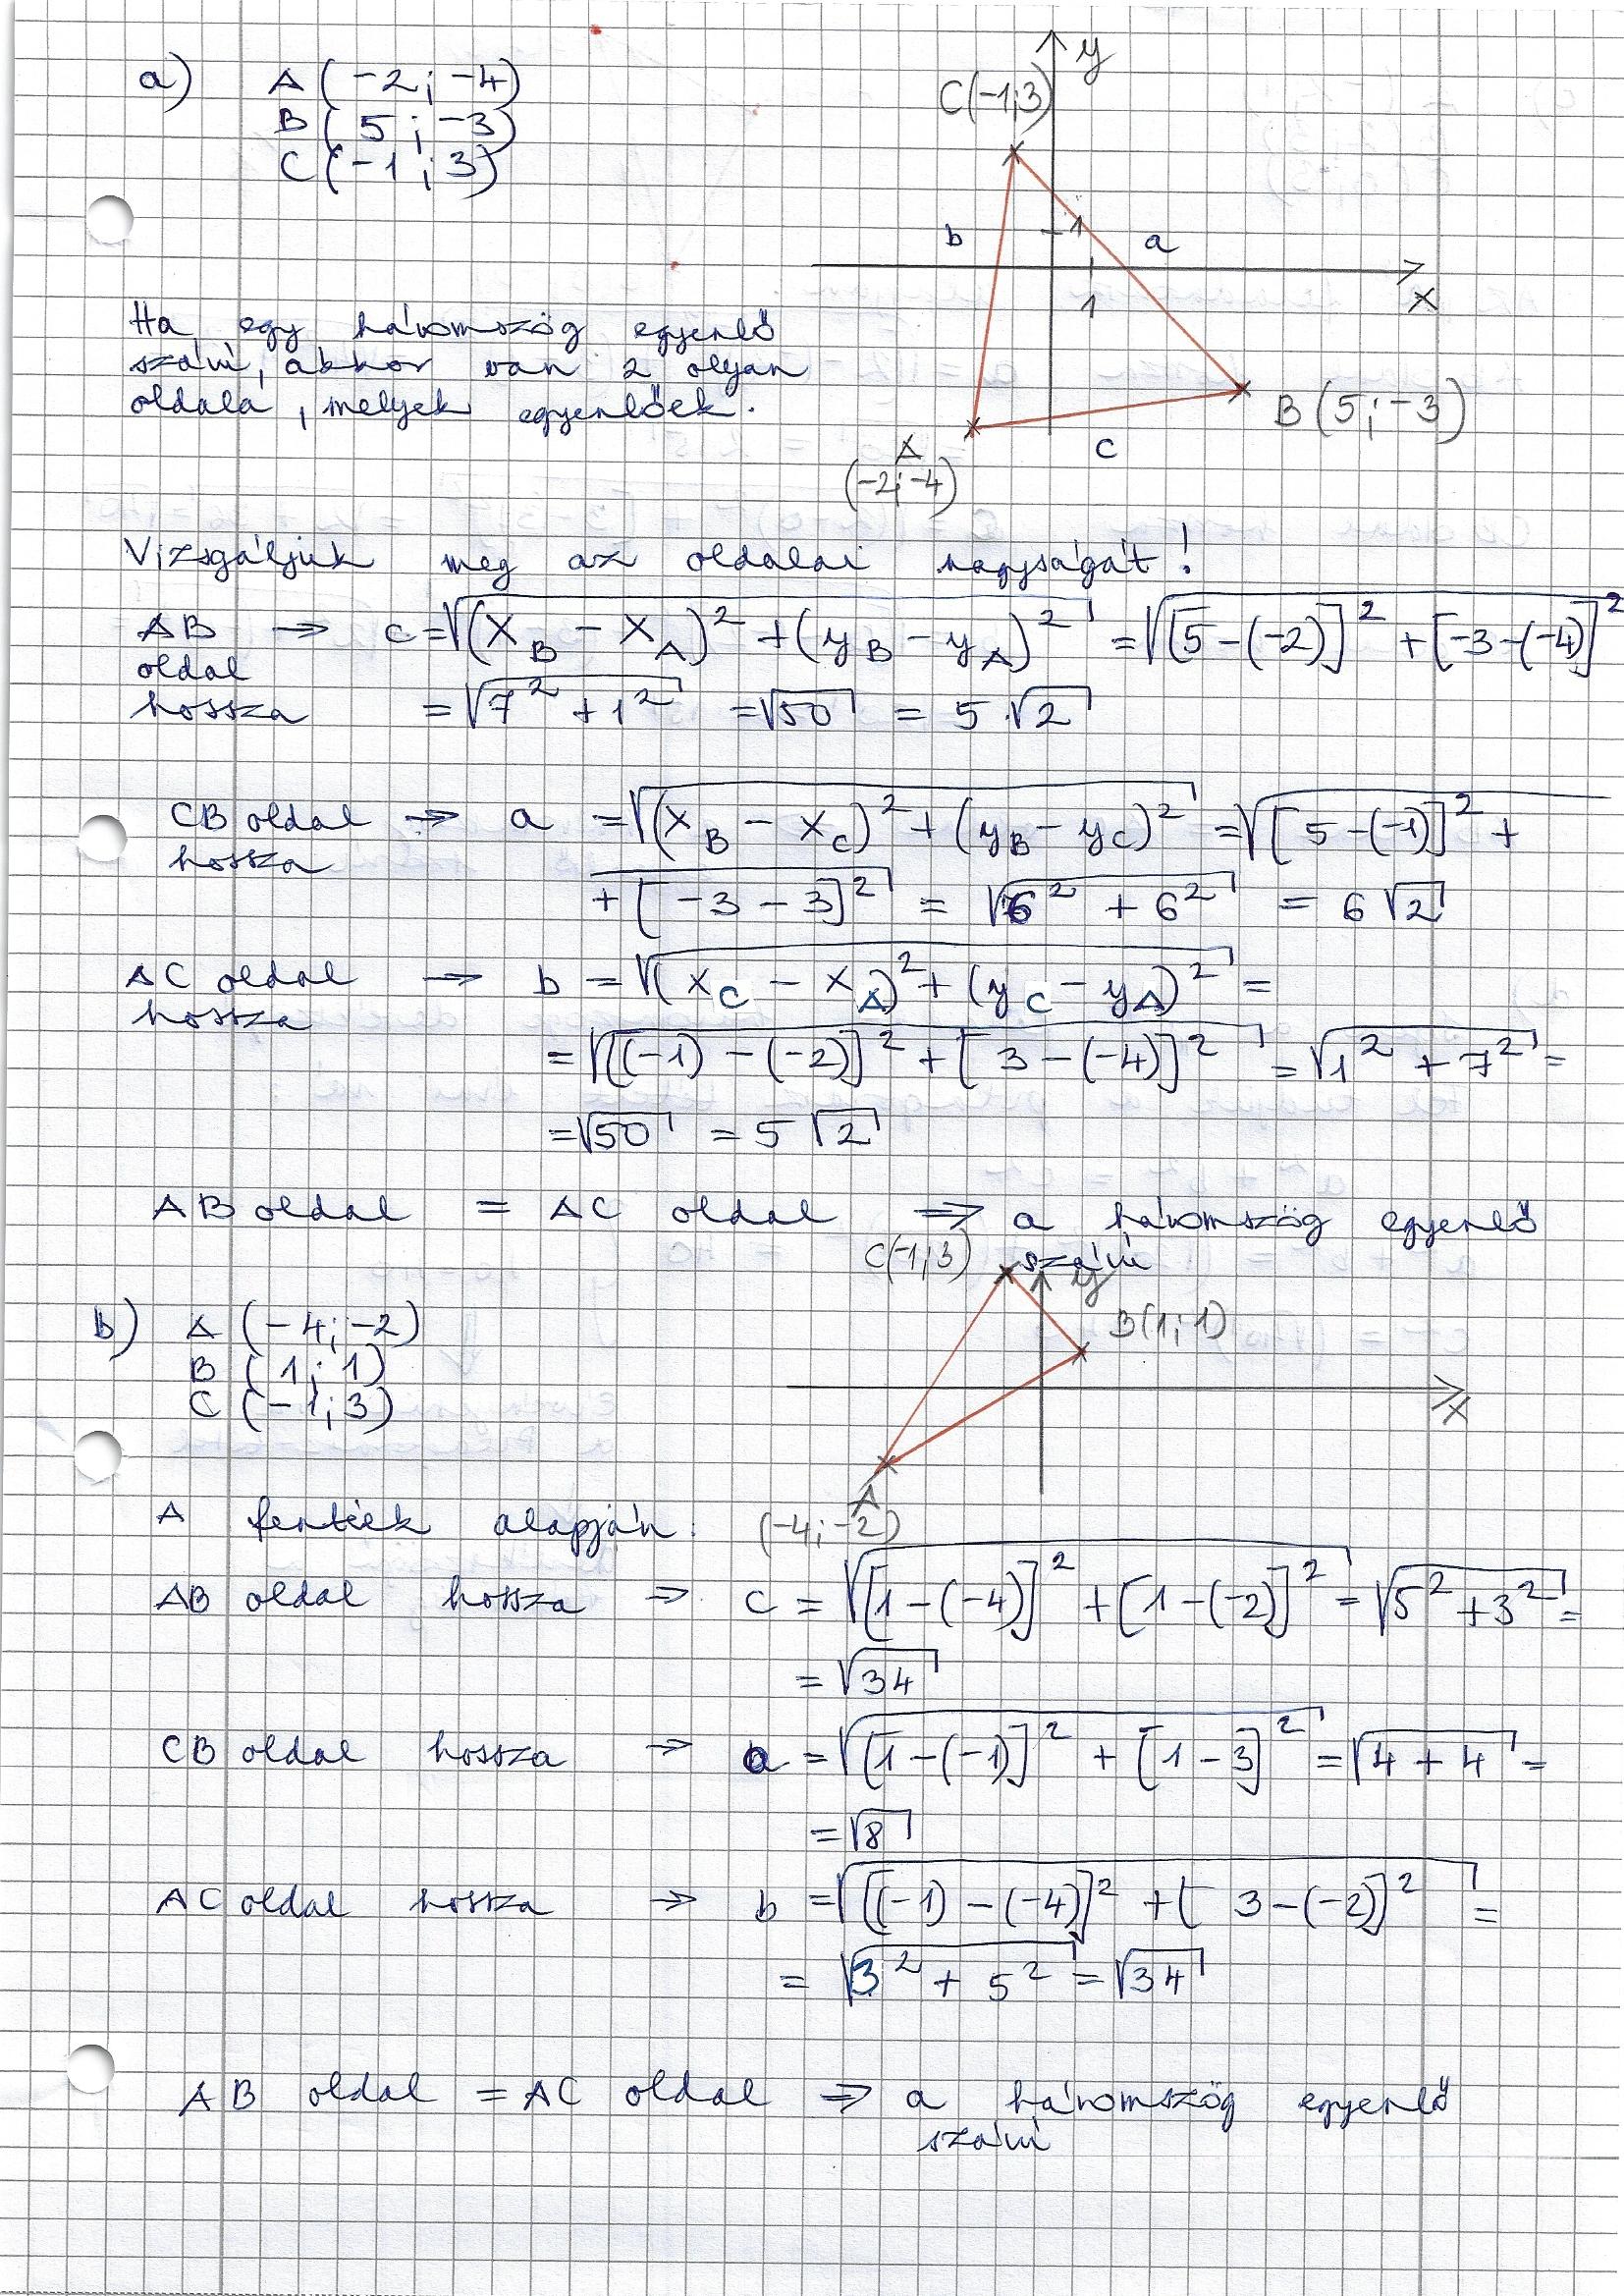 a) A (-2; -4)
B ( 5 ; -3)
C (-1 ; 3)
y
C(-1;3)
1
b
a
x
1
B (5; -3)
A
(-2; -4)
c
Ha egy háromszög egyenlő
szárú, akkor van 2 olyan
oldala, melyek egyenlőek.
Vizsgáljuk meg az oldalai nagyságát!
AB → c = √((x_B - x_A)² + (y_B - y_A)²) = √([5-(-2)]² + [-3-(-4)]²
oldal
hossza = √(7² + 1²) = √50 = 5·√2
CB oldal → a = √((x_B - x_C)² + (y_B - y_C)²) = √([5-(-1)]² +
hossza + [-3-3]²) = √(6² + 6²) = 6√2
AC oldal → b = √((x_C - x_A)² + (y_C - y_A)²) =
hossza
= √([(-1) - (-2)]² + [3-(-4)]²) = √(1² + 7²) =
= √50 = 5√2
AB oldal = AC oldal ⇒ a háromszög egyenlő
szárú
C(-1;3)
y
B(1;1)
x
A
(-4; -2)
b) A (-4; -2)
B ( 1; 1)
C (-1; 3)
A fentiek alapján:
AB oldal hossza → c = √([1-(-4)]² + [1-(-2)]²) = √(5² + 3²) =
= √34
CB oldal hossza → a = √([1-(-1)]² + [1-3]²) = √(4+4) =
= √8
AC oldal hossza → b = √([(-1) - (-4)]² + [3-(-2)]²) =
= √(3² + 5²) = √34
AB oldal = AC oldal ⇒ a háromszög egyenlő
szárú